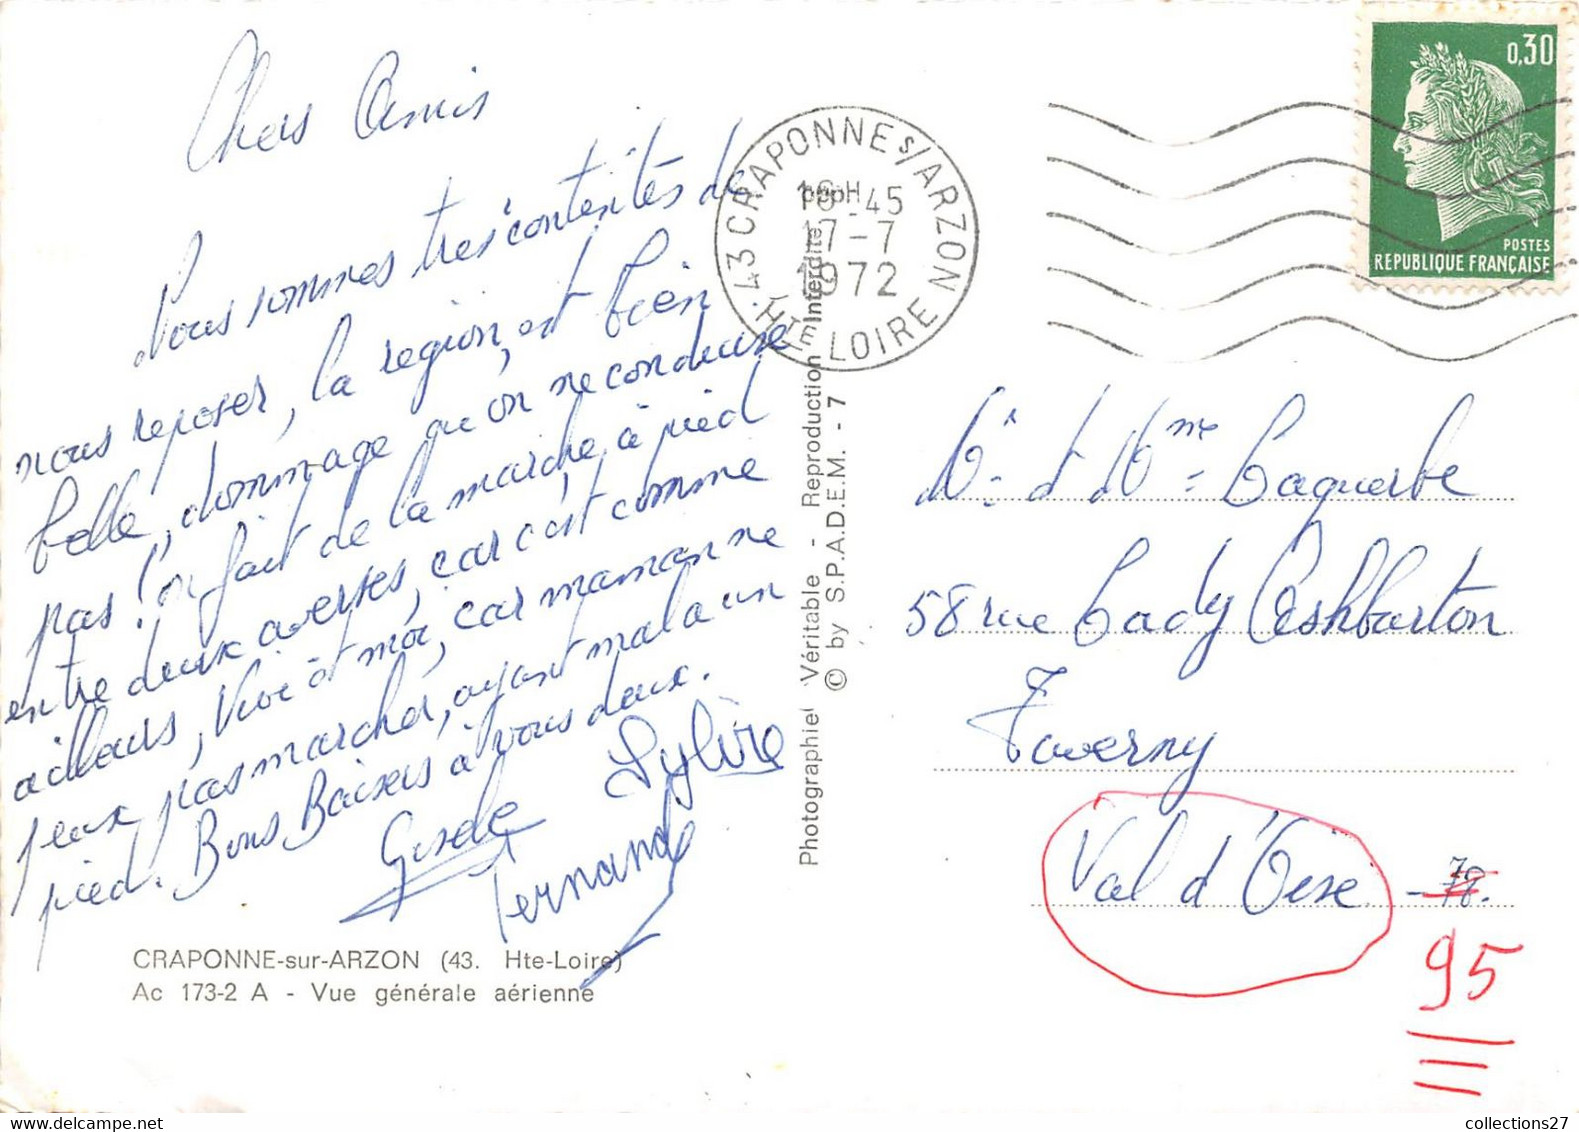 Chers Amis
Nous sommes très contentes de
nous reposer, la region, est bien
belle, dommage qu'on ne conduise
pas! on fait de la marche à pied
entre deux averses, car c'est comme
ailleurs, et moi, car maman ne
peux pas marcher, ayant mal a un
pied. Bons Baisers à vous deux.
Gisele
Sylvie
Fernande
CRAPONNE-sur-ARZON (43. Hte-Loire)
Ac 173-2 A - Vue générale aérienne
Photographie Véritable - Reproduction Interdite
© by S.P.A.D.E.M. - 7
43 CRAPONNE S/ARZON
HTE LOIRE
18-45
17-7
1972
0,30
POSTES
REPUBLIQUE FRANÇAISE
Mr et Mme Laquerbe
58 rue Lady Ashbarton
Taverny
Val d'Oise - 78.
95
collections27